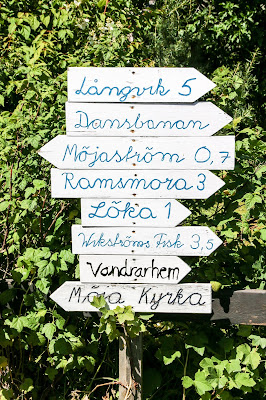 Långvik 5
Dansbanan
Möjaström 0,7
Ramsmora 3
Löka 1
Wikströms Fisk 3,5
Vandrarhem
Möja Kyrka